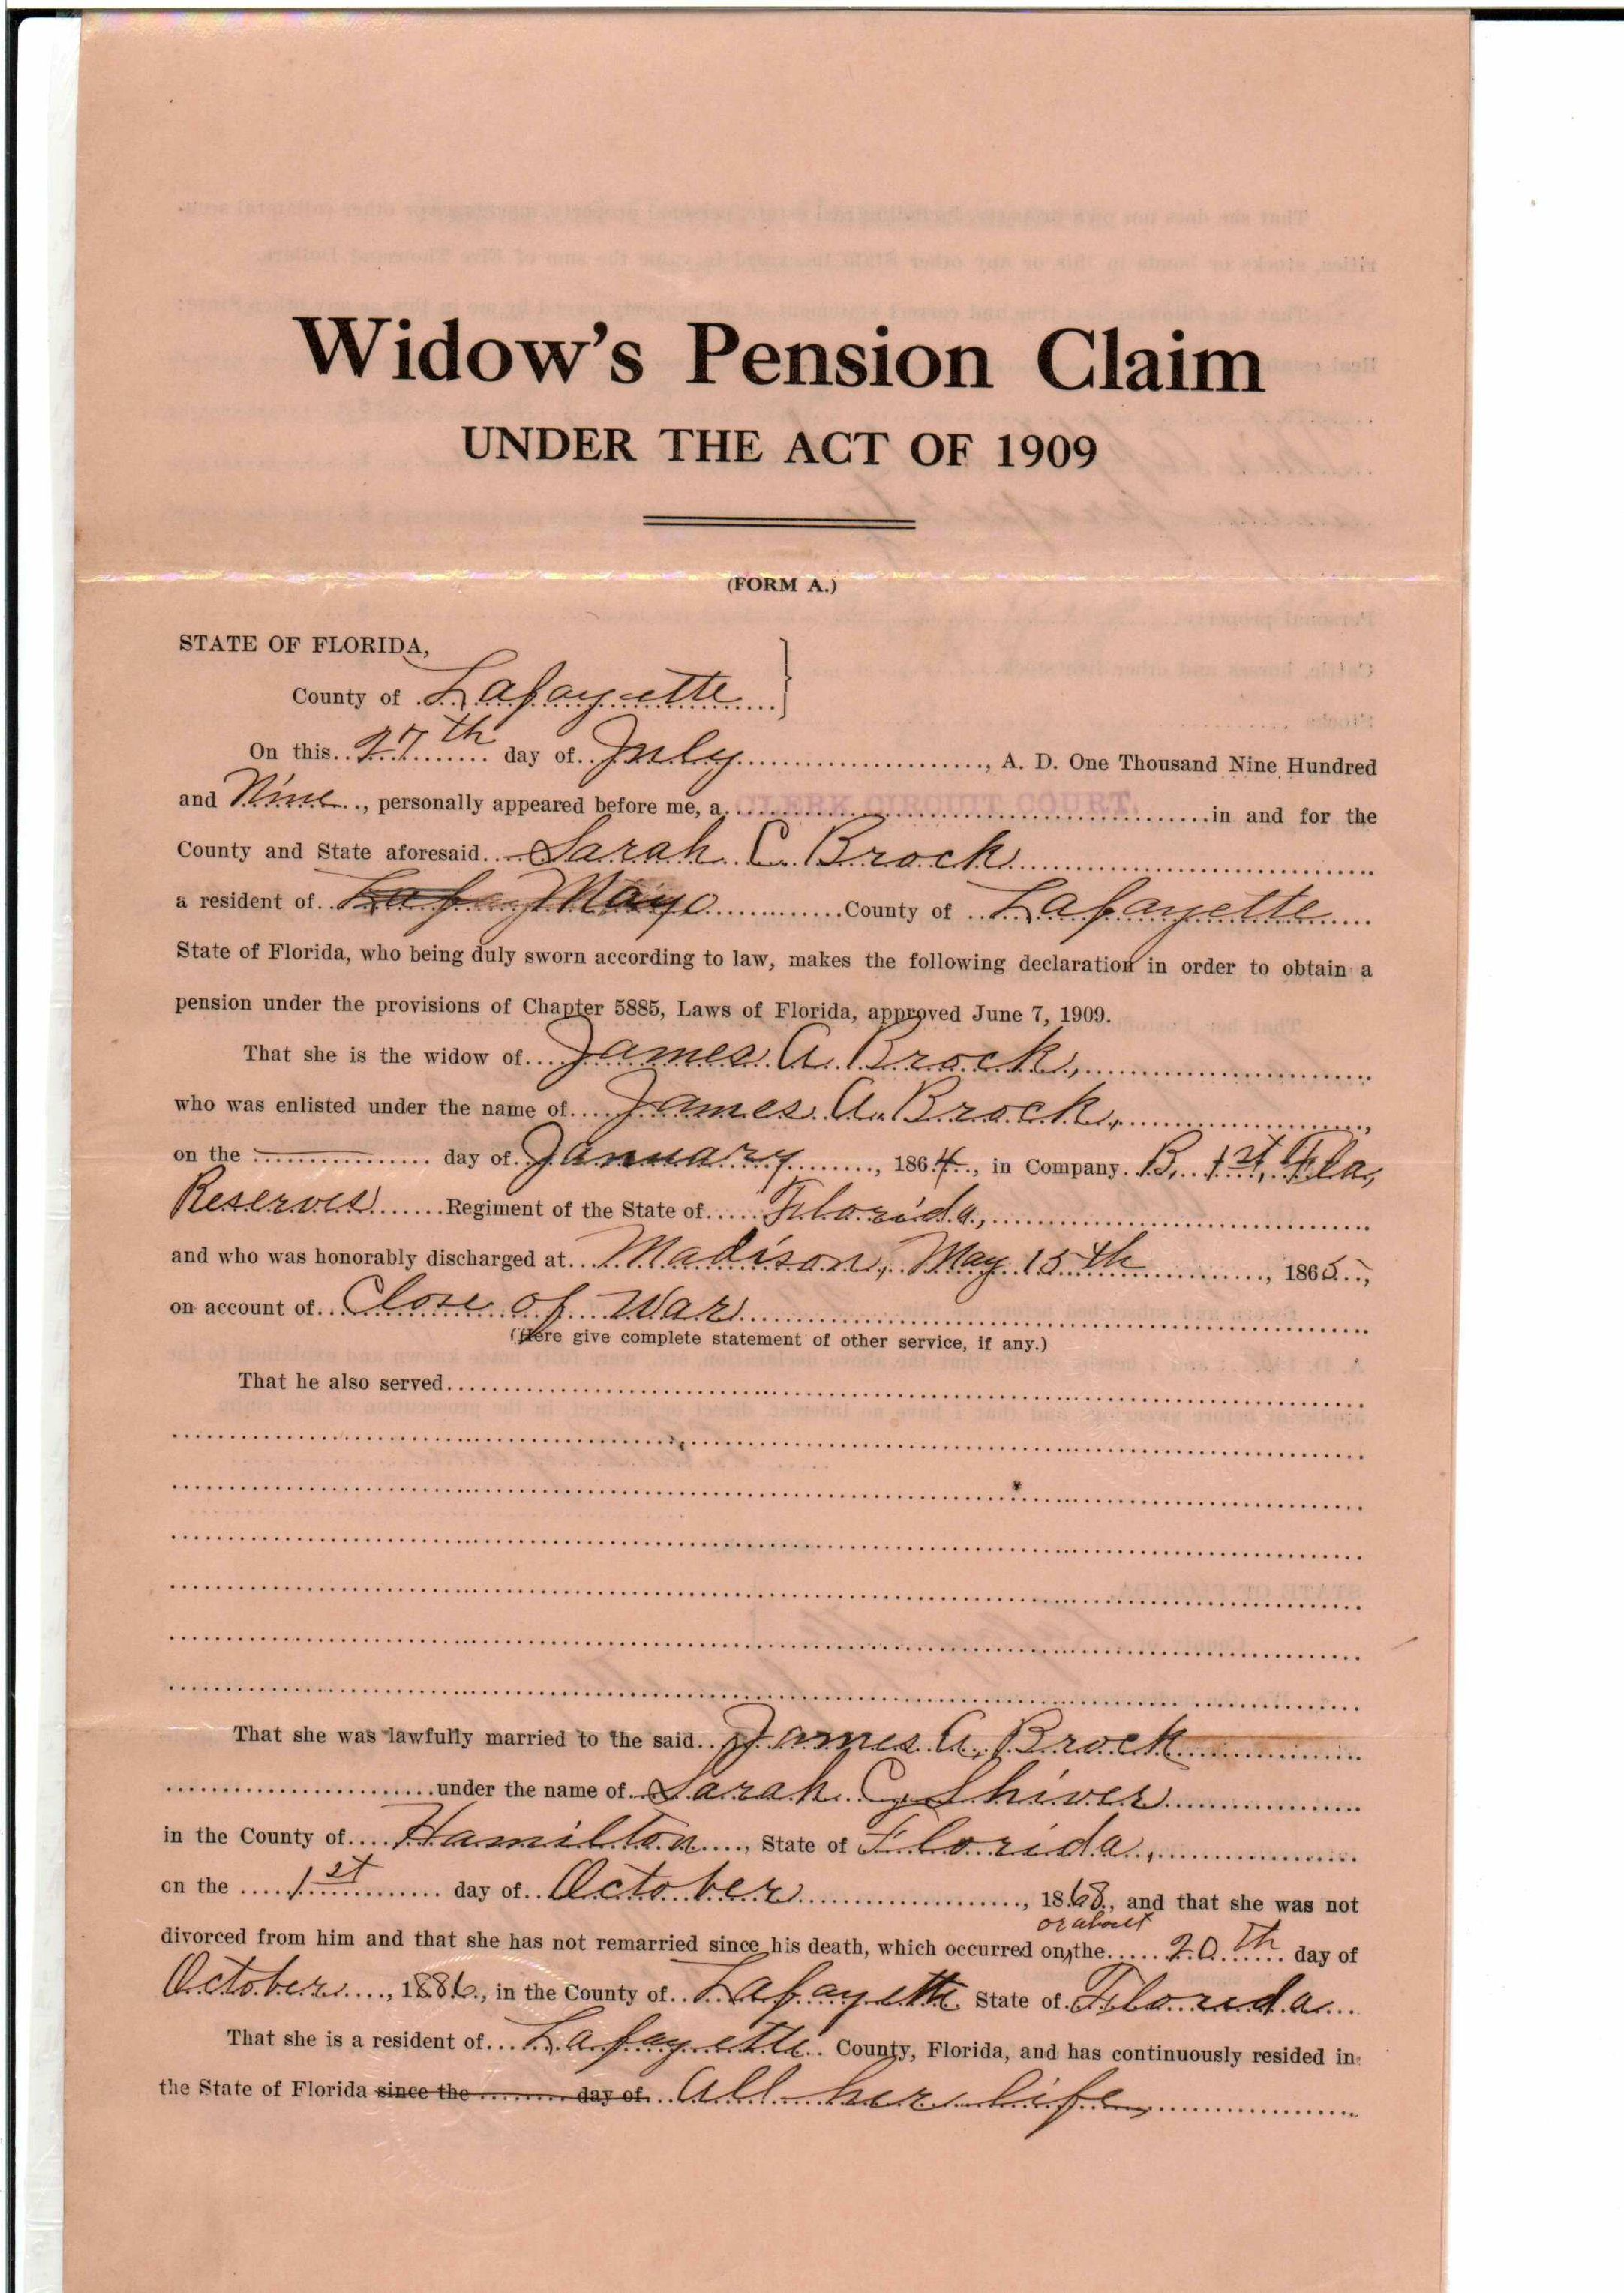 Widow's Pension Claim
UNDER THE ACT OF 1909
(FORM A.)
STATE OF FLORIDA,
County of Lafayette
On this 27th day of July, A. D. One Thousand Nine Hundred
and Nine, personally appeared before me, a CLERK CIRCUIT COURT. in and for the
County and State aforesaid Sarah C. Brock
a resident of Lafay Mayo County of Lafayette
State of Florida, who being duly sworn according to law, makes the following declaration in order to obtain a
pension under the provisions of Chapter 5885, Laws of Florida, approved June 7, 1909.
That she is the widow of James A. Brock,
who was enlisted under the name of James A. Brock,
on the day of January, 1864, in Company B. 1st, Fla,
Reserves Regiment of the State of Florida,
and who was honorably discharged at Madison, May 15th, 1865,
on account of Close of War
(Here give complete statement of other service, if any.)
That he also served
That she was lawfully married to the said James A. Brock
under the name of Sarah C. Shiver
in the County of Hamilton, State of Florida,
on the 1st day of October, 1868, and that she was not
or about
divorced from him and that she has not remarried since his death, which occurred on the 20th day of
October, 1886, in the County of Lafayette State of Florida
That she is a resident of Lafayette County, Florida, and has continuously resided in
the State of Florida since the day of All her life,